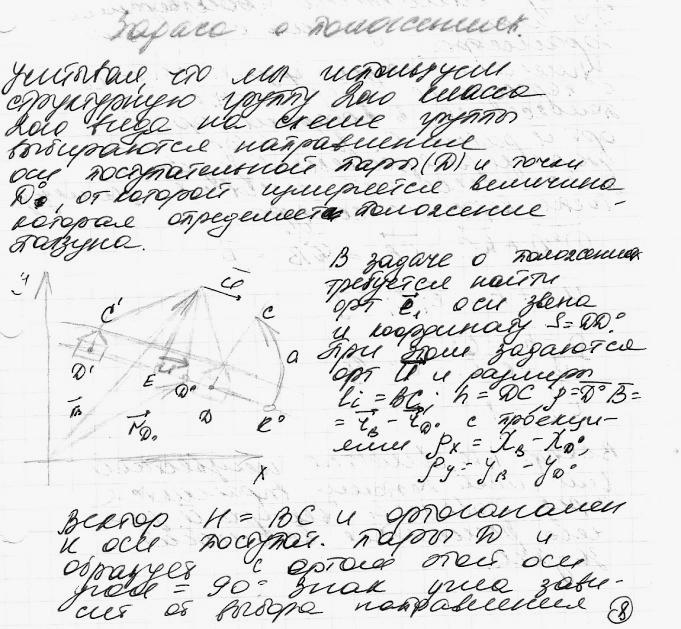 Задача о положениях.
Учитывая, что мы используем
структурную группу 2ого класса
2ого вида на схеме группы
выбираются направления
оси поступательной пары (D) и точки
D⁰, от которой измеряется величина
которая определяет положение
ползуна.
В задаче о положениях
требуется найти
орт e₁ оси звена
и координату S=DD⁰.
При этом задаются
орт U и размеры
li = BC; h = DC ρ=D⁰B=
= r_B - r_D⁰ с проекци-
ями ρx = X_B - X_D⁰,
ρy = y_B - y_D⁰
y
C'
C
D'
E
D⁰
D
a
K⁰
r_D₀
X
Вектор H = BC и ортогонален
к оси поступат. пары D и
образует с ортом этой оси
угол = 90° Знак угла зави-
сит от выбора направления
8